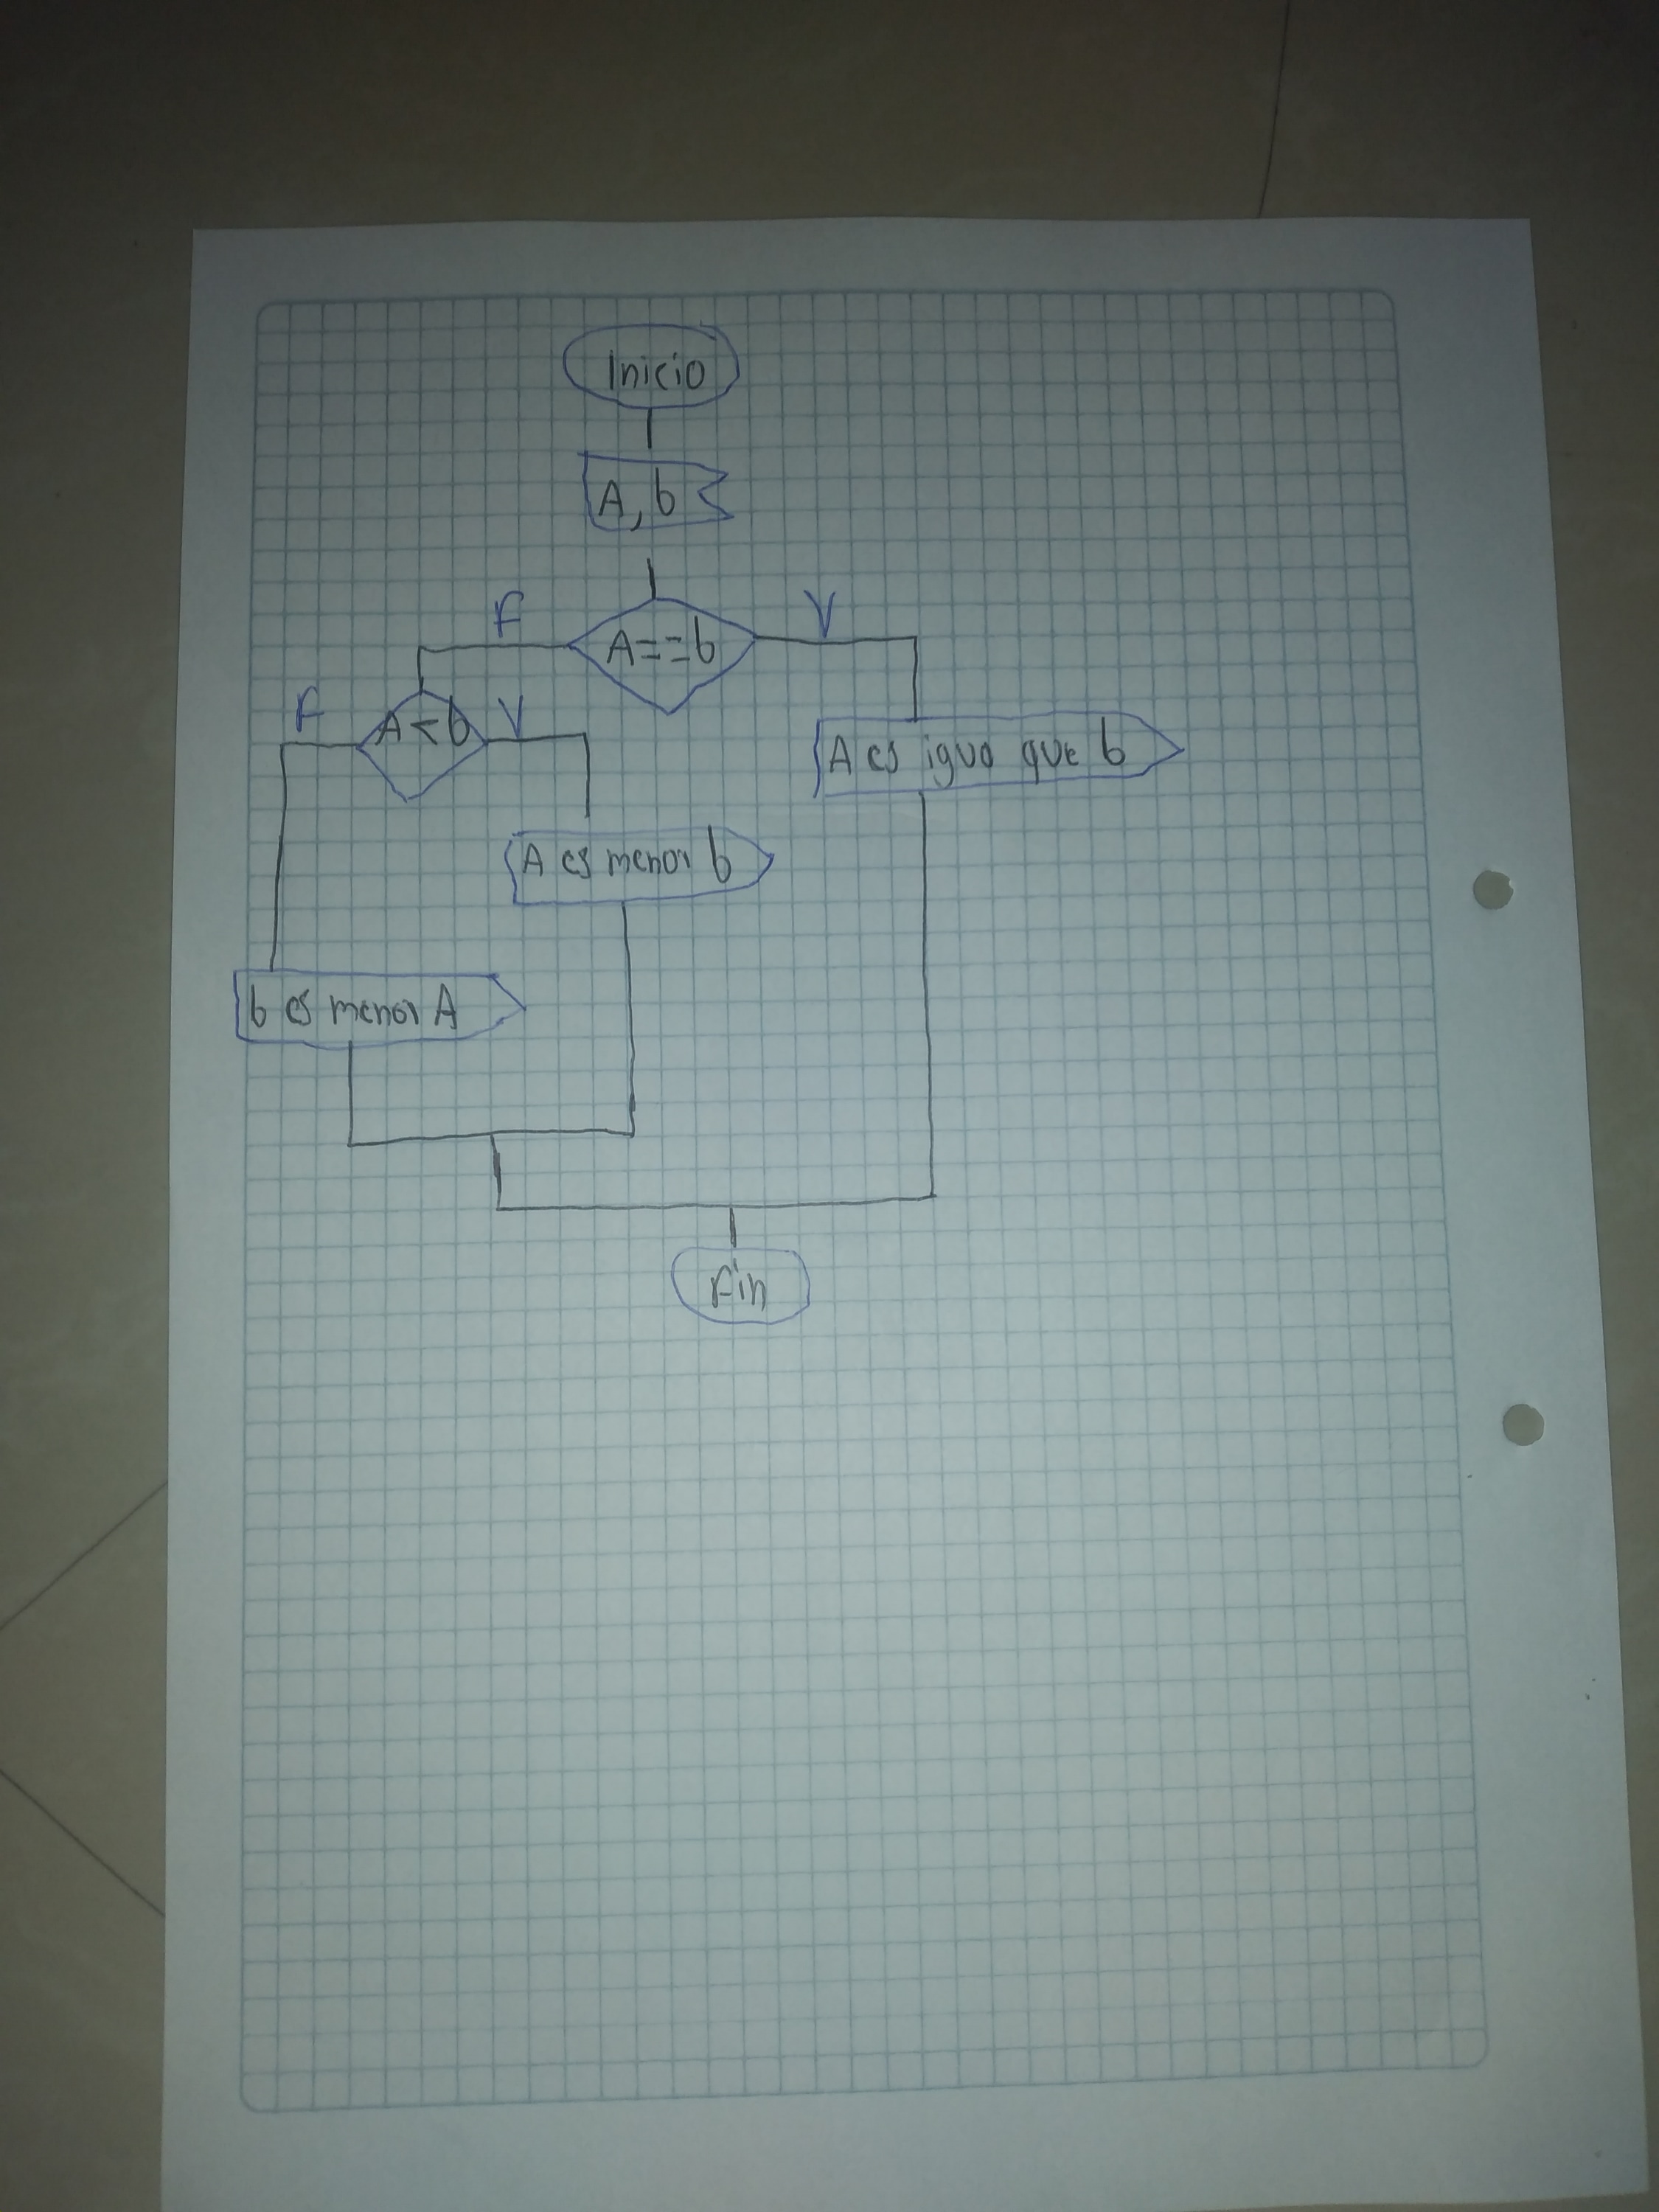 Inicio
A, b
F
V
A==b
F
A<b
V
A es igua que b
A es menor b
b es menor A
Fin